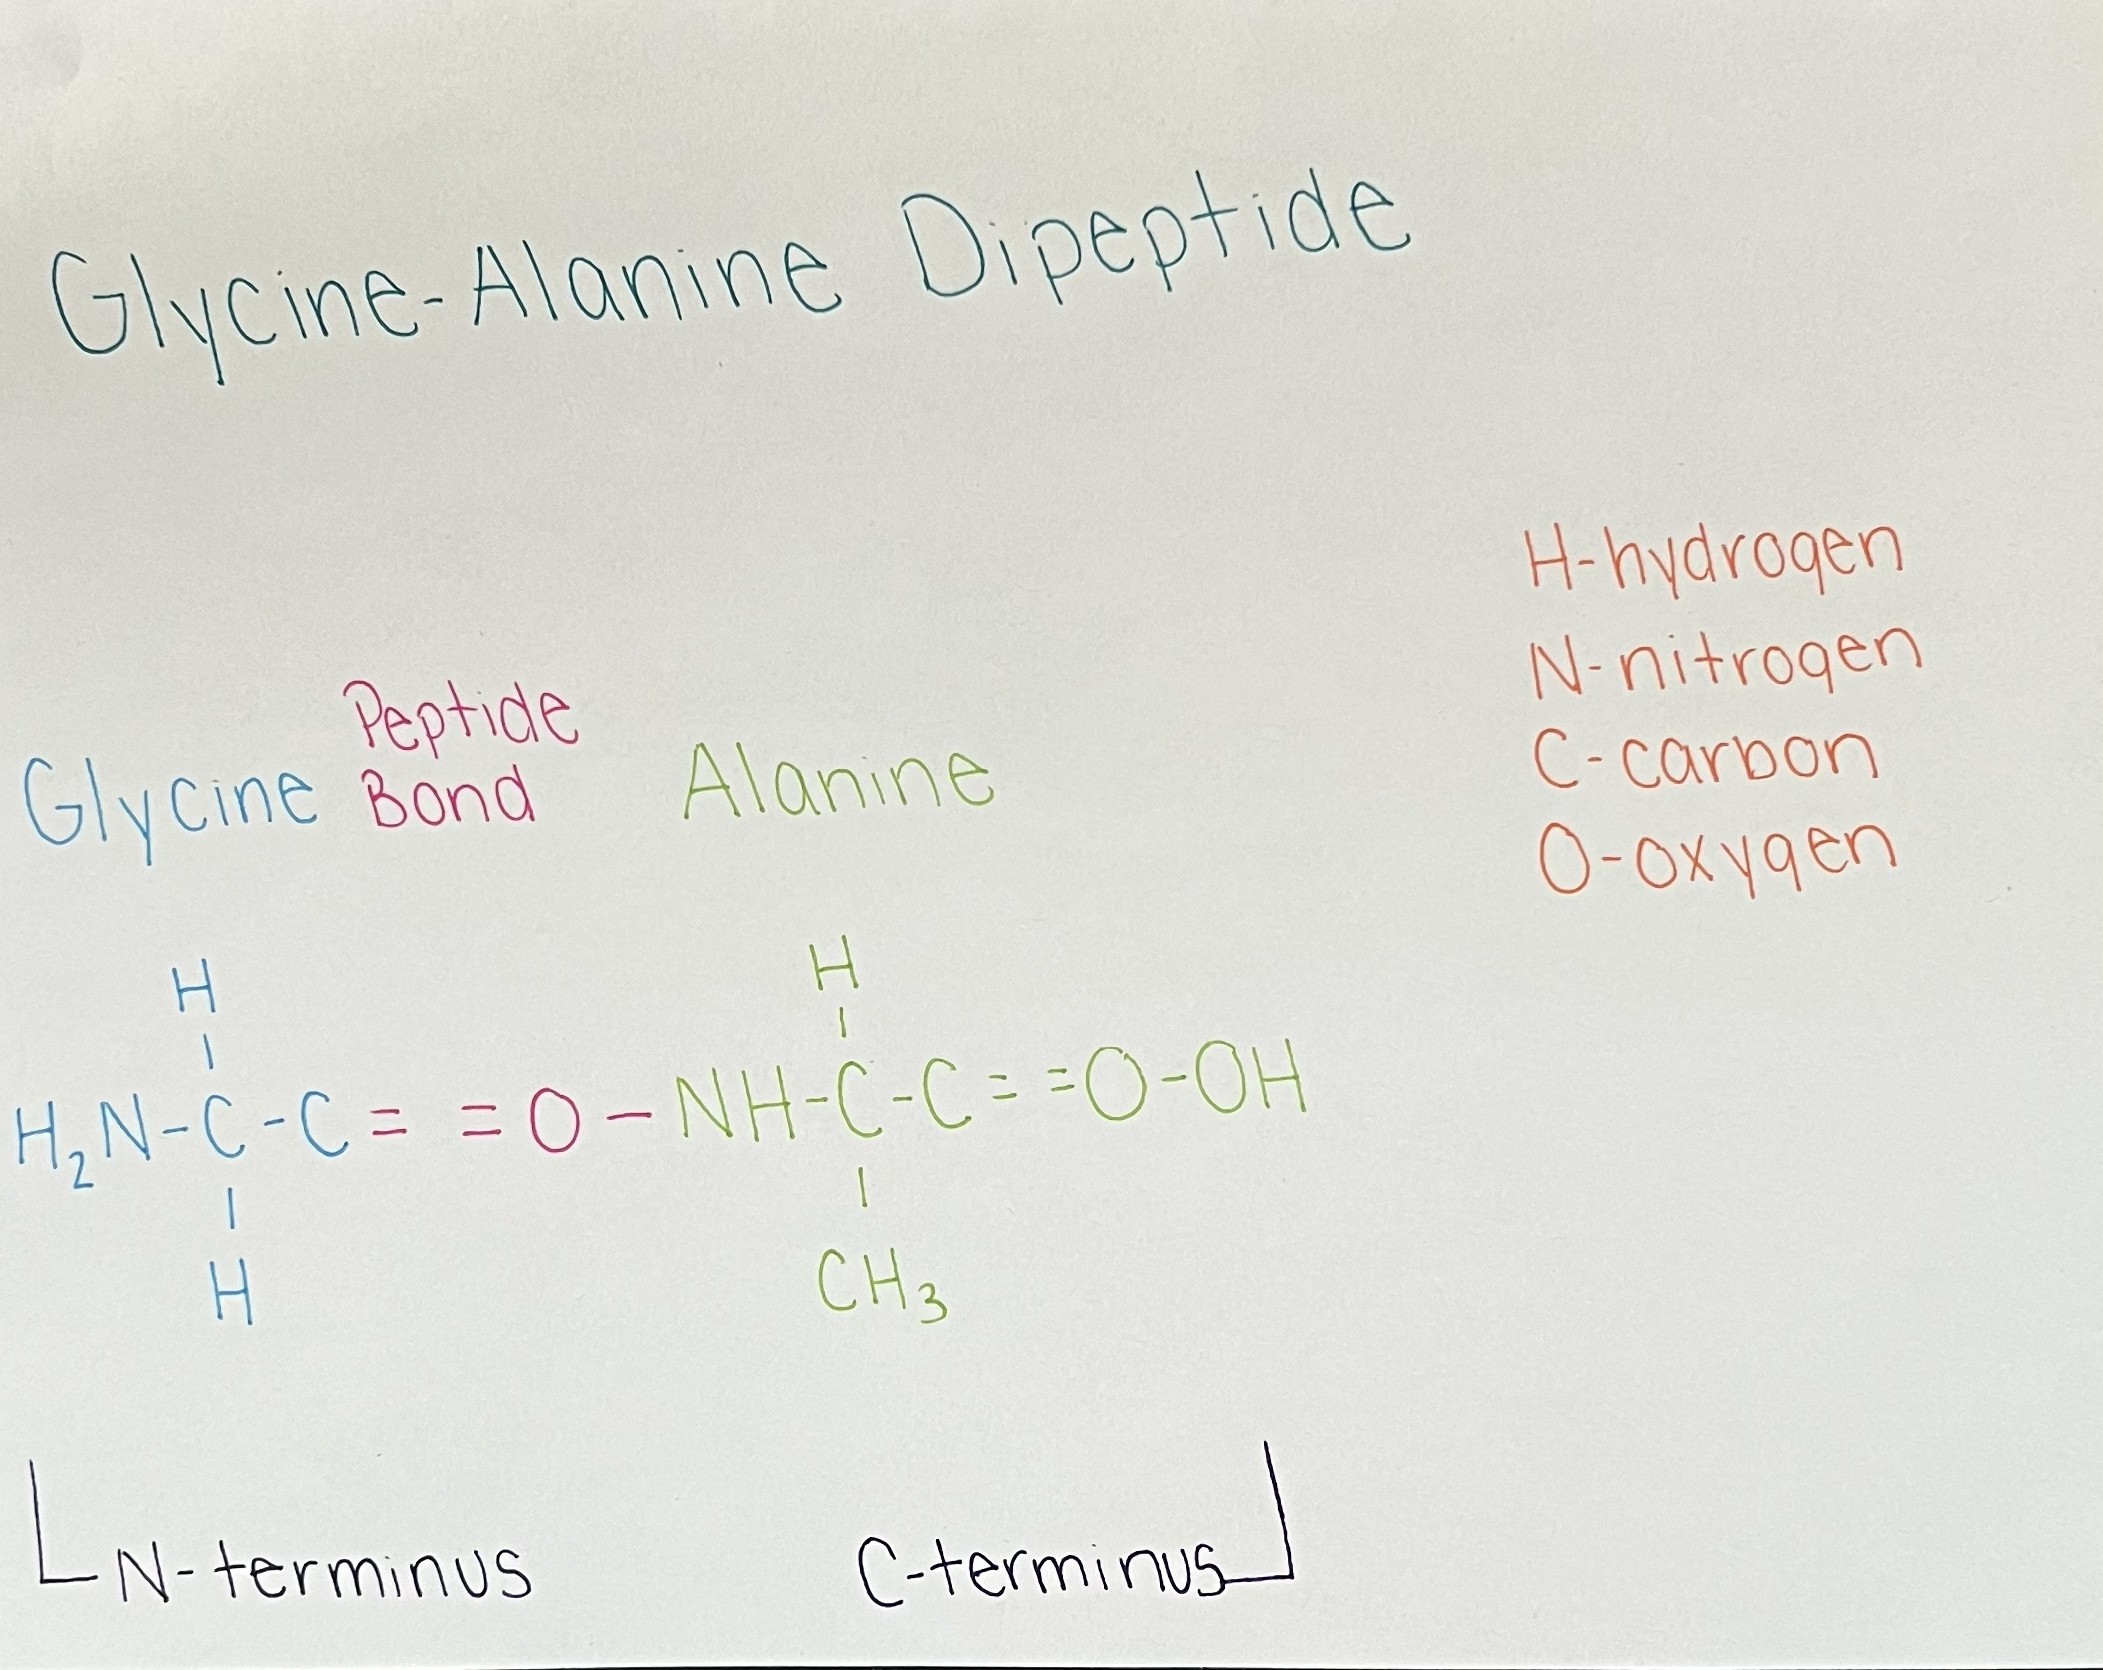 Glycine-Alanine Dipeptide
H-hydrogen
N-nitrogen
C-carbon
O-oxygen
Peptide
Glycine Bond Alanine
H H
H₂N-C-C= =O-NH-C-C= =O-OH
H CH₃
N-terminus C-terminus